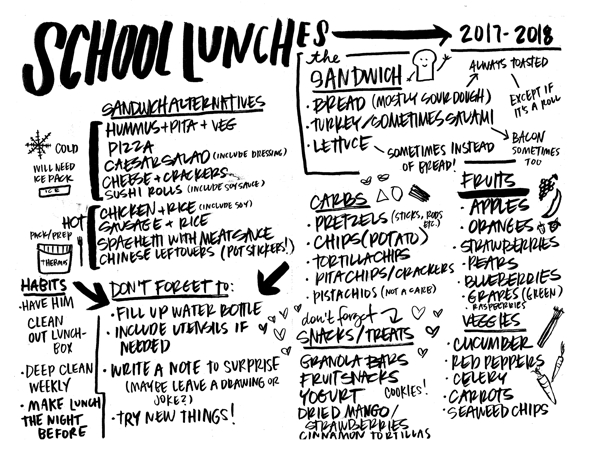 SCHOOL LUNCHES
2017-2018
SANDWICH ALTERNATIVES
COLD
WILL NEED
ICE PACK
ICE
HUMMUS + PITA + VEG
PIZZA
CAESAR SALAD (INCLUDE DRESSING)
CHEESE + CRACKERS
SUSHI ROLLS (INCLUDE SOY SAUCE)
HOT
PACK/PREP
THERMOS
CHICKEN + RICE (INCLUDE SOY)
SAUSAGE + RICE
SPAGHETTI WITH MEAT SAUCE
CHINESE LEFTOVERS (POTSTICKERS!)
the
SANDWICH
· BREAD (MOSTLY SOURDOUGH)
· TURKEY/SOMETIMES SALAMI
· LETTUCE
SOMETIMES INSTEAD
OF BREAD!
ALWAYS TOASTED
EXCEPT IF
IT'S A ROLL
BACON
SOMETIMES
TOO
HABITS
· HAVE HIM
CLEAN
OUT LUNCH-
BOX
· DEEP CLEAN
WEEKLY
· MAKE LUNCH
THE NIGHT
BEFORE
DON'T FORGET to:
· FILL UP WATER BOTTLE
· INCLUDE UTENSILS IF
NEEDED
· WRITE A NOTE TO SURPRISE
(MAYBE LEAVE A DRAWING OR
JOKE?)
· TRY NEW THINGS!
CARBS
· PRETZELS (STICKS, RODS
ETC.)
· CHIPS (POTATO)
· TORTILLA CHIPS
· PITA CHIPS/CRACKERS
· PISTACHIOS (NOT A CARB)
don't forget
SNACKS/TREATS
GRANOLA BARS
FRUIT SNACKS
YOGURT
COOKIES!
DRIED MANGO/
STRAWBERRIES
CINNAMON TORTILLAS
FRUITS
· APPLES
· ORANGES
· STRAWBERRIES
· PEARS
· BLUEBERRIES
· GRAPES (GREEN)
RASPBERRIES
VEGGIES
· CUCUMBER
· RED PEPPERS
· CELERY
· CARROTS
· SEAWEED CHIPS